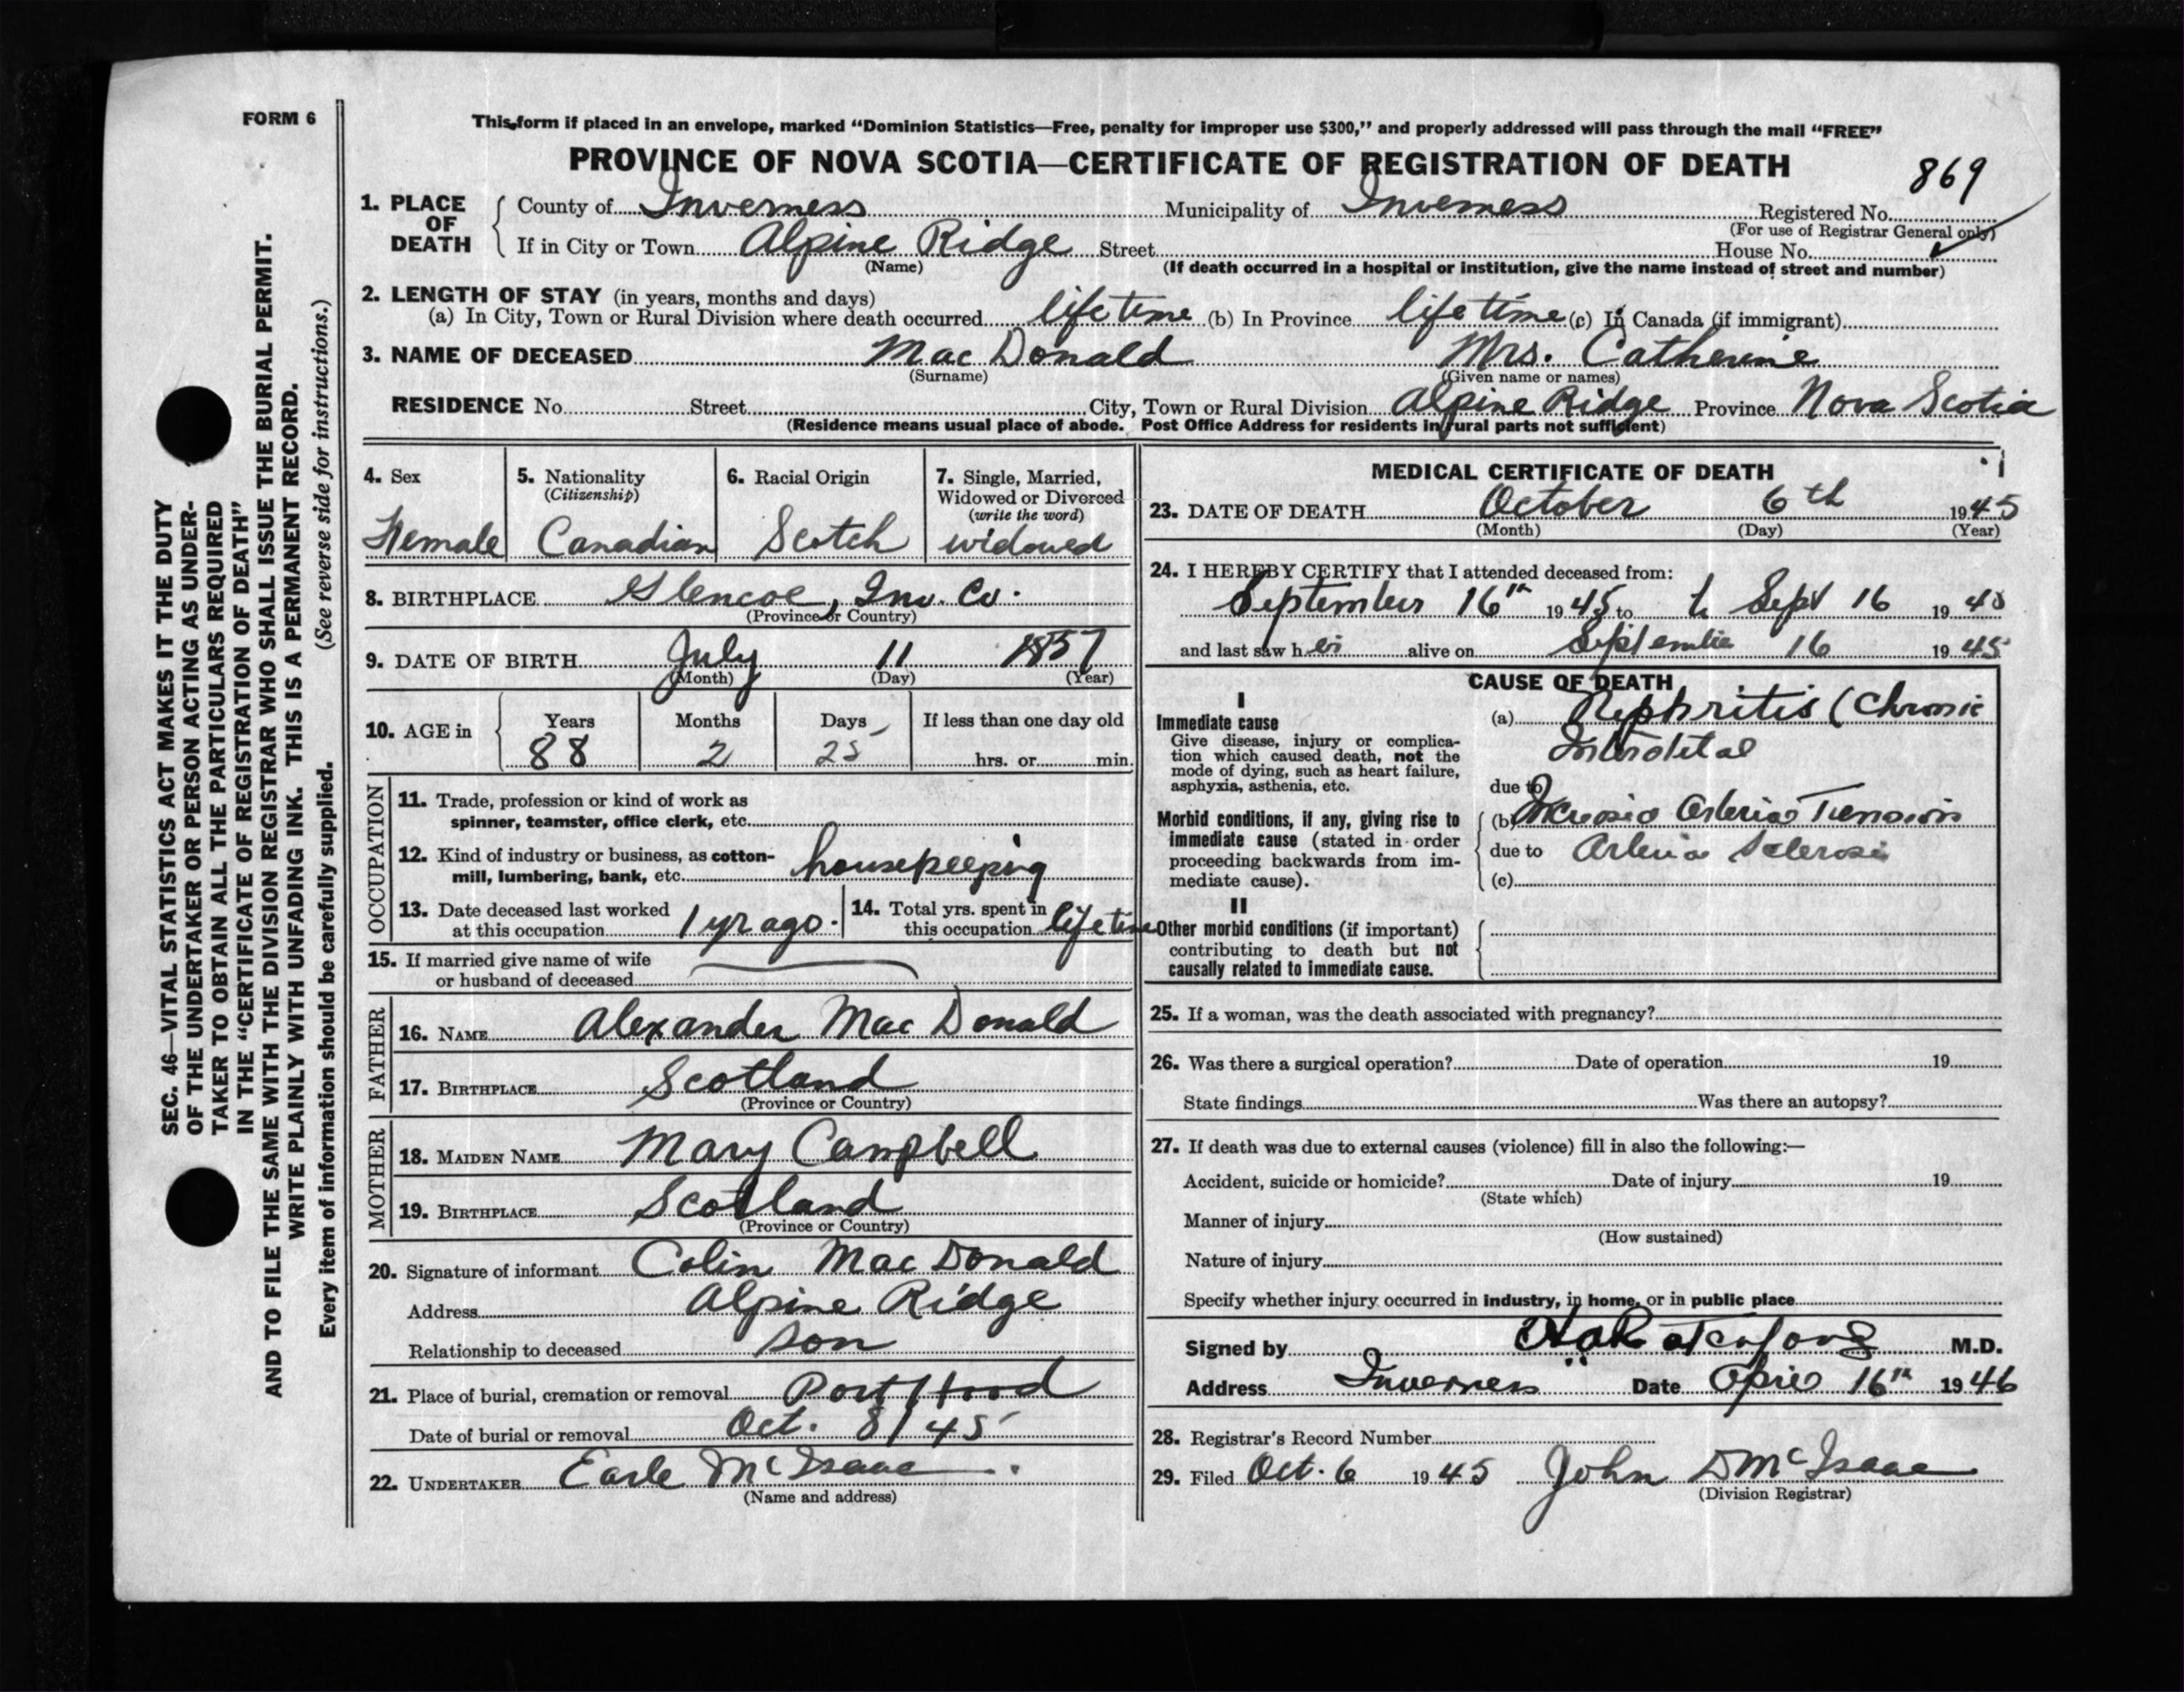 FORM 6
This form if placed in an envelope, marked “Dominion Statistics—Free, penalty for improper use $300,” and properly addressed will pass through the mail “FREE”
PROVINCE OF NOVA SCOTIA—CERTIFICATE OF REGISTRATION OF DEATH
869
1. PLACE OF DEATH County of Inverness Municipality of Inverness Registered No.
(For use of Registrar General only)
If in City or Town Alpine Ridge Street House No.
(Name) (If death occurred in a hospital or institution, give the name instead of street and number)
2. LENGTH OF STAY (in years, months and days)
(a) In City, Town or Rural Division where death occurred life time (b) In Province life time (c) In Canada (if immigrant)
3. NAME OF DECEASED Mac Donald Mrs. Catherine
(Surname) (Given name or names)
RESIDENCE No. Street City, Town or Rural Division Alpine Ridge Province Nova Scotia
(Residence means usual place of abode. Post Office Address for residents in rural parts not sufficient)
4. Sex
Female
5. Nationality
(Citizenship)
Canadian
6. Racial Origin
Scotch
7. Single, Married,
Widowed or Divorced
(write the word)
widowed
8. BIRTHPLACE Glencoe, Inv. Co.
(Province or Country)
9. DATE OF BIRTH July 11 1857
(Month) (Day) (Year)
10. AGE in Years Months Days If less than one day old
88 2 25 hrs. or min.
OCCUPATION
11. Trade, profession or kind of work as
spinner, teamster, office clerk, etc.
12. Kind of industry or business, as cotton-
mill, lumbering, bank, etc. housekeeping
13. Date deceased last worked
at this occupation 1 yr ago.
14. Total yrs. spent in
this occupation life time
15. If married give name of wife
or husband of deceased
FATHER
16. NAME Alexander Mac Donald
17. BIRTHPLACE Scotland
(Province or Country)
MOTHER
18. MAIDEN NAME Mary Campbell
19. BIRTHPLACE Scotland
(Province or Country)
20. Signature of informant Colin Mac Donald
Address Alpine Ridge
Relationship to deceased son
21. Place of burial, cremation or removal Port Hood
Date of burial or removal Oct. 8/45
22. UNDERTAKER Earle McIsaac
(Name and address)
MEDICAL CERTIFICATE OF DEATH
23. DATE OF DEATH October 6th 1945
(Month) (Day) (Year)
24. I HEREBY CERTIFY that I attended deceased from:
September 16th 1945 to Sept 16 1945
and last saw her alive on September 16 1945
CAUSE OF DEATH
I
Immediate cause
Give disease, injury or complica-
tion which caused death, not the
mode of dying, such as heart failure,
asphyxia, asthenia, etc.
(a) Nephritis (Chronic
due to
Morbid conditions, if any, giving rise to
immediate cause (stated in order
proceeding backwards from im-
mediate cause).
(b)
due to
(c)
II
Other morbid conditions (if important)
contributing to death but not
causally related to immediate cause.
25. If a woman, was the death associated with pregnancy?
26. Was there a surgical operation? Date of operation 19
State findings Was there an autopsy?
27. If death was due to external causes (violence) fill in also the following:—
Accident, suicide or homicide? Date of injury 19
(State which)
Manner of injury
(How sustained)
Nature of injury
Specify whether injury occurred in industry, in home, or in public place
Signed by M.D.
Address Inverness Date April 16th 1946
28. Registrar's Record Number
29. Filed Oct. 6 1945 John D McIsaac
(Division Registrar)
SEC. 46—VITAL STATISTICS ACT MAKES IT THE DUTY
OF THE UNDERTAKER OR PERSON ACTING AS UNDER-
TAKER TO OBTAIN ALL THE PARTICULARS REQUIRED
IN THE “CERTIFICATE OF REGISTRATION OF DEATH”
AND TO FILE THE SAME WITH THE DIVISION REGISTRAR WHO SHALL ISSUE THE BURIAL PERMIT.
WRITE PLAINLY WITH UNFADING INK. THIS IS A PERMANENT RECORD.
Every item of information should be carefully supplied. (See reverse side for instructions.)